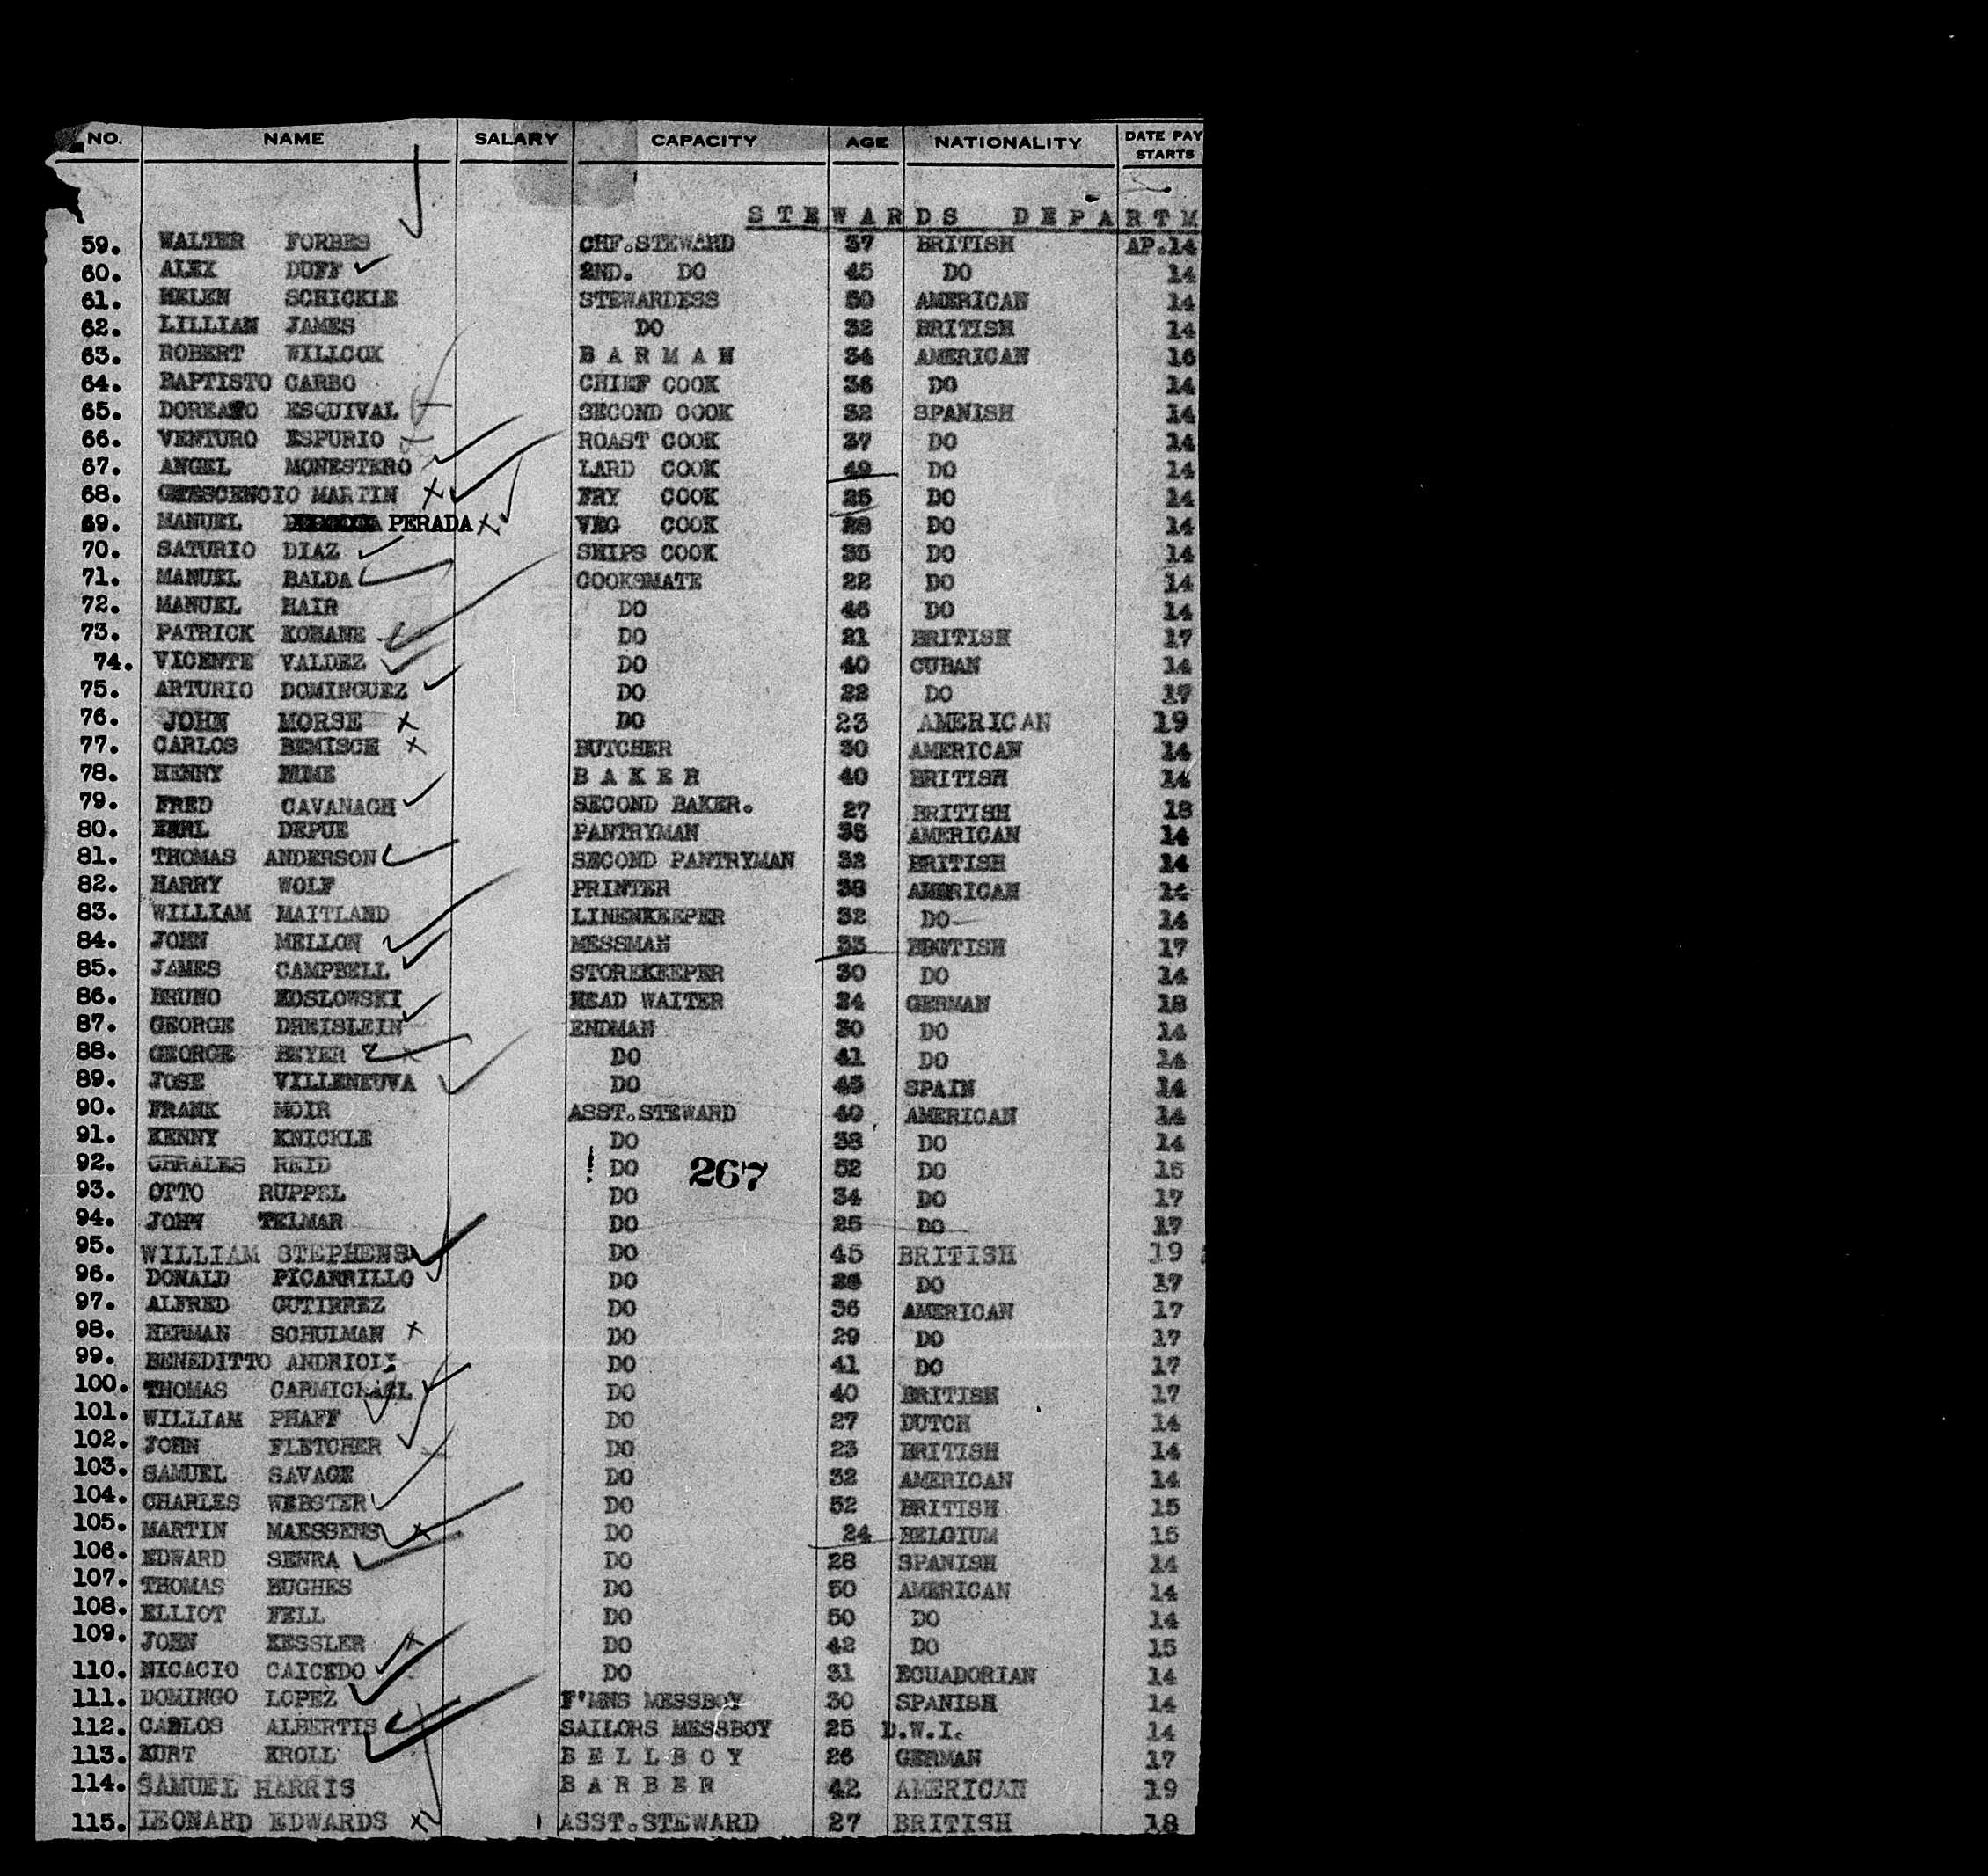 NO. NAME SALARY CAPACITY AGE NATIONALITY DATE PAY STARTS
STEWARDS DEPARTM
59. WALTER FORBES CHF.STEWARD 37 BRITISH AP.14
60. ALEX DUFF 2ND. DO 45 DO 14
61. HELEN SCHICKLE STEWARDESS 50 AMERICAN 14
62. LILLIAN JAMES DO 32 BRITISH 14
63. ROBERT WILLCOX BARMAN 34 AMERICAN 16
64. BAPTISTO CARBO CHIEF COOK 36 DO 14
65. ESQUIVAL SECOND COOK 32 SPANISH 14
66. VENTURO ESPURIO ROAST COOK 37 DO 14
67. ANGEL MONESTERO LARD COOK 49 DO 14
68. MARTIN FRY COOK 25 DO 14
69. MANUEL PERADA VEG COOK DO 14
70. SATURIO DIAZ SHIPS COOK 35 DO 14
71. MANUEL BALDA COOKSMATE 22 DO 14
72. MANUEL HAIR DO 46 DO 14
73. PATRICK KOHANE DO 21 BRITISH 17
74. VICENTE VALDEZ DO 40 CUBAN 14
75. ARTURIO DOMINGUEZ DO 22 DO 17
76. JOHN MORSE X DO 23 AMERICAN 19
77. CARLOS BEMISCH X BUTCHER 30 AMERICAN 14
78. HENRY BAKER 40 BRITISH 14
79. FRED CAVANAGH SECOND BAKER. 27 BRITISH 18
80. DEPUE PANTRYMAN 35 AMERICAN 14
81. THOMAS ANDERSON SECOND PANTRYMAN 32 BRITISH 14
82. HARRY WOLF PRINTER 38 AMERICAN 14
83. WILLIAM MAITLAND LINENKEEPER 32 DO 14
84. JOHN MELLON MESSMAN 33 17
85. JAMES CAMPBELL STOREKEEPER 30 DO 14
86. BRUNO KOSLOWSKI HEAD WAITER 34 GERMAN 18
87. GEORGE DREISLEIN ENDMAN 30 DO 14
88. GEORGE BEYER DO 41 DO 14
89. JOSE VILLENEUVA DO 45 SPAIN 14
90. FRANK MOIR ASST.STEWARD 40 AMERICAN 14
91. KENNY KNICKLE DO 38 DO 14
92. REID DO 267 52 DO 15
93. OTTO RUPPEL DO 34 DO 17
94. JOHN TELMAR DO 25 DO 17
95. WILLIAM STEPHENS DO 45 BRITISH 19
96. DONALD PICARRILLO DO DO 17
97. ALFRED GUTIRREZ DO 36 AMERICAN 17
98. HERMAN SCHULMAN X DO 29 DO 17
99. BENEDITTO ANDRIOLI DO 41 DO 17
100. THOMAS CARMICHAEL DO 40 BRITISH 17
101. WILLIAM PHAFF DO 27 DUTCH 14
102. JOHN FLETCHER DO 23 BRITISH 14
103. SAMUEL SAVAGE DO 32 AMERICAN 14
104. CHARLES WEBSTER DO 52 BRITISH 15
105. MARTIN MAESSENS X DO 24 BELGIUM 15
106. EDWARD SENRA DO 28 SPANISH 14
107. THOMAS HUGHES DO 50 AMERICAN 14
108. ELLIOT FELL DO 50 DO 14
109. JOHN KESSLER X DO 42 DO 15
110. NICACIO CAICEDO DO 31 ECUADORIAN 14
111. DOMINGO LOPEZ F'MNS MESSBOY 30 SPANISH 14
112. CARLOS ALBERTIS SAILORS MESSBOY 25 D.W.I. 14
113. KURT KROLL BELLBOY 26 GERMAN 17
114. SAMUEL HARRIS BARBER 42 AMERICAN 19
115. LEONARD EDWARDS X ASST.STEWARD 27 BRITISH 18